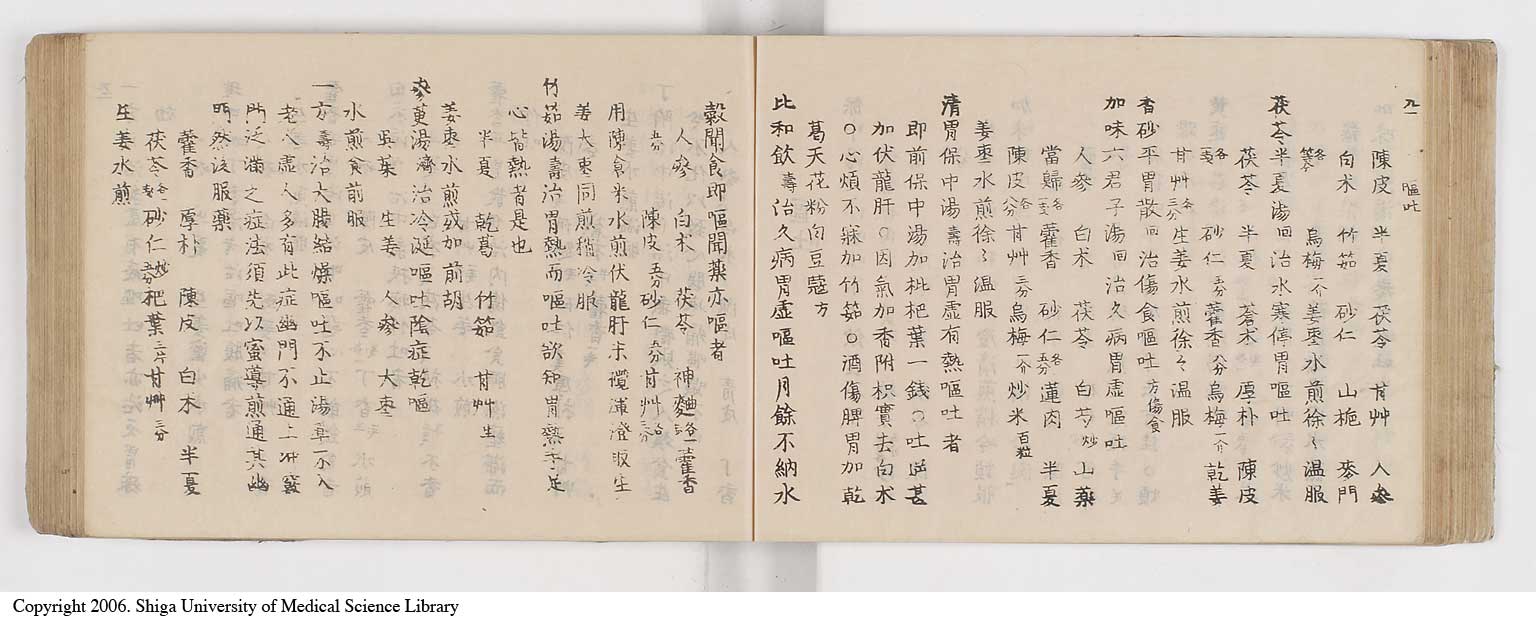 九一 嘔吐
陳皮 半夏 茯苓 甘艸 人參
白朮 竹茹 砂仁 山梔 麥門
各等分 烏梅一介 姜棗水煎徐々温服
茯苓半夏湯回治水寒停胃嘔吐
茯苓 半夏 蒼朮 厚朴 陳皮
各一匁 砂仁三分 藿香八分 烏梅一介 乾姜
甘艸各三分 生姜水煎徐々温服
香砂平胃散回治傷食嘔吐方傷食
加味六君子湯回治久病胃虛嘔吐
人參 白朮 茯苓 白芍炒 山藥
當歸各一匁 藿香 砂仁各五分 蓮肉 半夏
陳皮各八分 甘艸三分 烏梅一介 炒米百粒
姜棗水煎徐々温服
清胃保中湯壽治胃虛有熱嘔吐者
即前保中湯加枇杷葉一錢○吐逆甚
加伏龍肝○因氣加香附枳實去白朮
○心煩不寐加竹茹○酒傷脾胃加乾
葛天花粉白豆蔻方
比和飲壽治久病胃虛嘔吐月餘不納水
穀聞食即嘔聞藥亦嘔者
人參 白朮 茯苓 神麯各一 藿香
五分 陳皮五分 砂仁五分 甘艸各三分
用陳倉米水煎伏龍肝末攪渾澄取生
姜大棗同煎稍冷服
竹茹湯壽治胃熱而嘔吐欲知胃熱手足
心皆熱者是也
半夏 乾葛 竹茹 甘艸生
姜棗水煎或加前胡
參萸湯濟治冷涎嘔吐陰症乾嘔
吳茱 生姜 人參 大棗
水煎食前服
一方壽治大腸結燥嘔吐不止湯藥不入
老人虛人多有此症幽門不通上冲
門泛滿之症法須先以蜜導煎通其幽
門然後服藥
藿香 厚朴 陳皮 白朮 半夏
茯苓 砂仁炒六分 杷葉三片 甘艸三分
生姜水煎
Copyright 2006. Shiga University of Medical Science Library